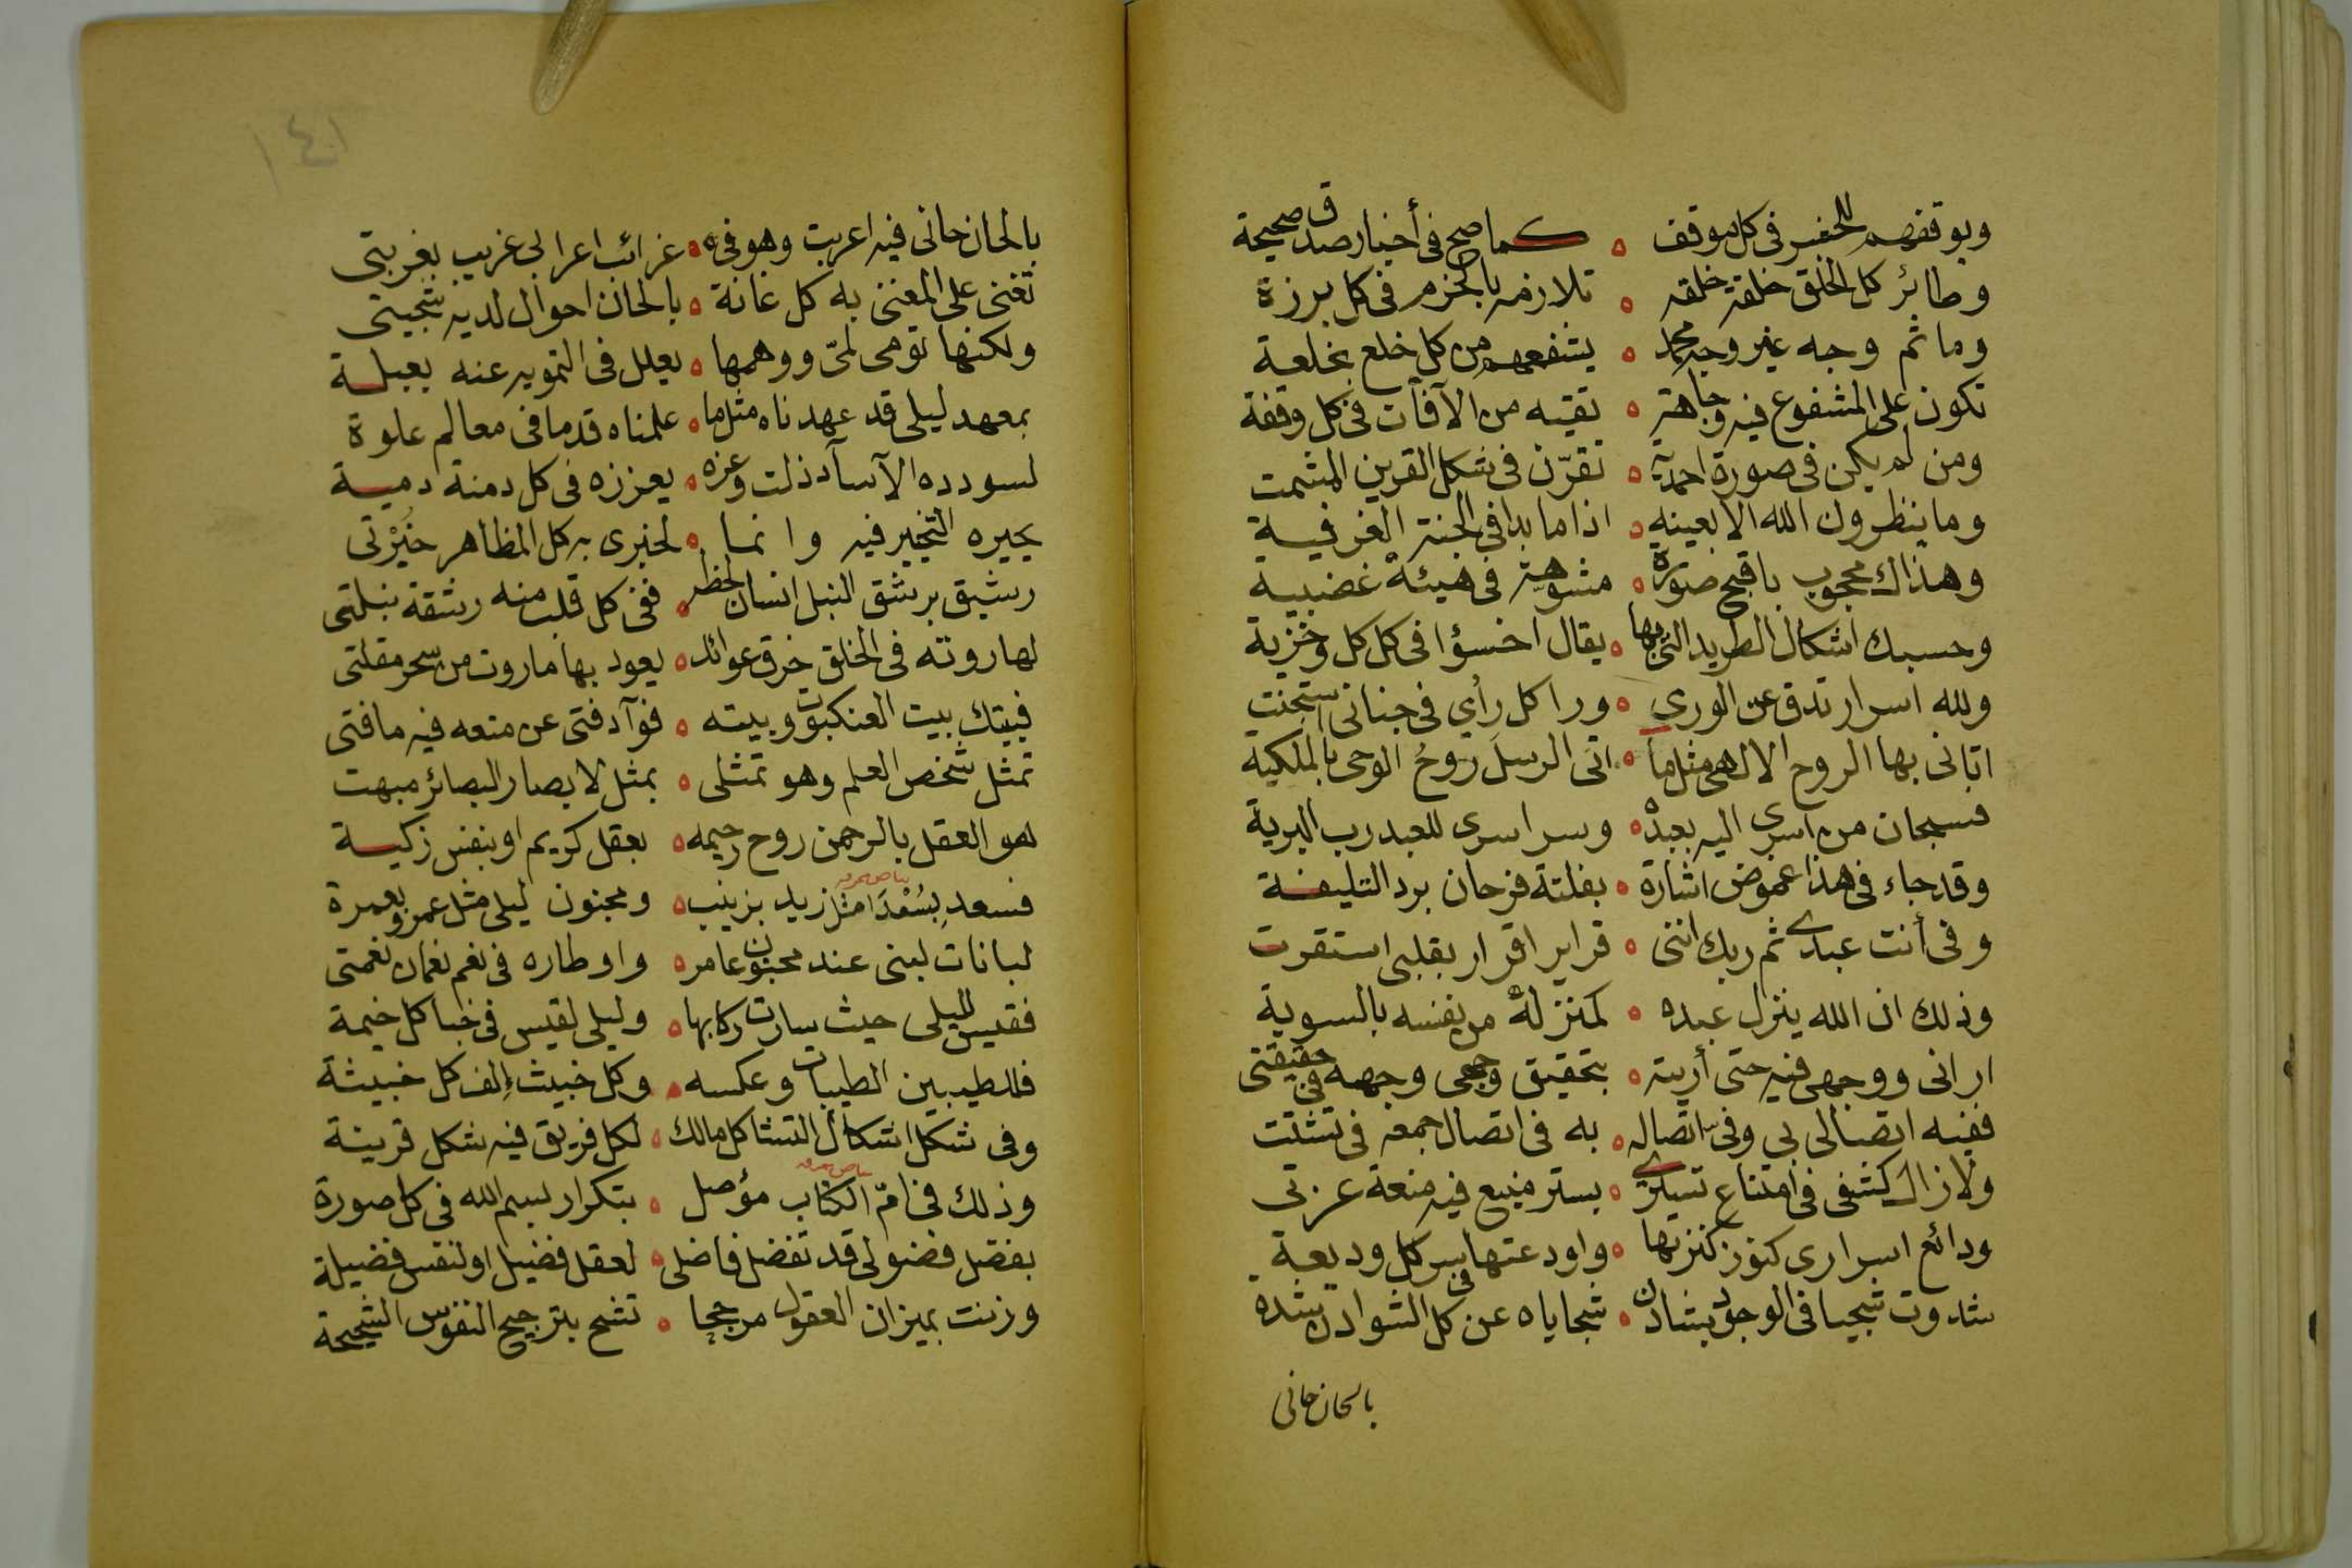 ويوقفهم للخفس في كل موقف ه كما صح في أخبار صدق صحيحة
وطائر كل الخلق خلقة خلقه ه تلازمه بالخزم في كل برزة
وما ثم وجه غير وجه محمد ه يشفعهم من كل خلع بخلعة
تكون على المشفوع فيه وجاهة ه تقيه من الآفات في كل وقفة
ومن لم يكن في صورة احمدية ه تقرّن في شكل القرين المشمت
وما ينظرون الله الا بعينه ه اذا ما بدا في الجنة الغرفية
وهذاك محجوب باقبح صورة ه مشوهة في هيئة غضبية
وحسبك اشكال الطريد التي بها ه يقال اخسؤا في كل كل وخزية
ولله اسرار تدق عن الورى ه ورا كل رأي في جناني استجنت
اتاني بها الروح الالهي مثل ما ه اتى الرسل روح الوحي بالملكية
فسبحان من اسرى اليه بعبده ه وسر اسرى للعبد رب البرية
وقد جاء في هذا غموض اشارة ه بفلتة فرحان برد التليفة
وفي أنت عبدي ثم ربك انني ه قراير اقرار بقلبي استقرت
وذلك ان الله ينزل عبده ه كمنزلة من نفسه بالسوية
اراني ووجهي فيه حتى أريته ه بتحقيق وجهي وجهه في حقيقتي
ففيه اتصالي بي وفي اتصاله ه به في اتصال جمعه في تشتت
ولا زال كشفي في امتناع تستري ه بستر منيع فيه منعة عزتي
ودائع اسراري كنوز كنزتها ه واودعتها في سر كل وديعة
شدوت شجيا في الوجود بشادن ه شجاياه عن كل الشوادن شده
بالحان حاني
١٤١
بالحان حاني فيه اعربت وهو في ه غرائب اعرابي غريب بغربتي
تغنى على المغنى به كل غانة ه بالحان احوال لديه شجيتي
ولكنها تومي لمىّ ووهمها ه يعلل في التمويه عنه بعبلة
بمعهد ليلى قد عهدناه مثل ما ه علمناه قدما في معالم علوة
لسودده الآساد ذلت وعزه ه يعززه في كل دمنة دمية
يحيره التخيير فيه وانما ه لخبرى به كل المظاهر خيرتي
رشيق برشق النبل انسان لحظه ه ففي كل قلب منه رشقة نبلتي
لهاروته في الخلق خرق عوائد ه يعود بها ماروت من سحر مقلتي
فبيتك بيت العنكبوت وبيته ه فوآد فتى عن متعه فيه ما فتى
تمثل شخص العلم وهو تمثلى ه بمثل لابصار البصائر مبهت
هو العقل بالرحمن روح رحيمه ه بعقل كريم او بنفس زكية
فسعد بسعدا مثل زيد بزينب ه ومجنون ليلى مثل عمرو بعمرة
لبانات لبنى عند مجنون عامر ه واوطاره في نعم نعمان نعمتي
فقيس لليلى حيث سارت ركابها ه وليلى لقيس في خبا كل خيمة
فللطيبين الطيبات وعكسه ه وكل خبيث إلف كل خبيثة
وفي شكل اشكال التشاكل مالك ه لكل فريق فيه شكل قرينة
وذلك في امّ الكتاب مؤصل ه بتكرار بسم الله في كل صورة
بفضل فضولي قد تفضل فاضلى ه لعقل فضيل او لنفس فضيلة
وزنت بميزان العقول مرجحا ه تشح بترجيح النفوس الشحيحة